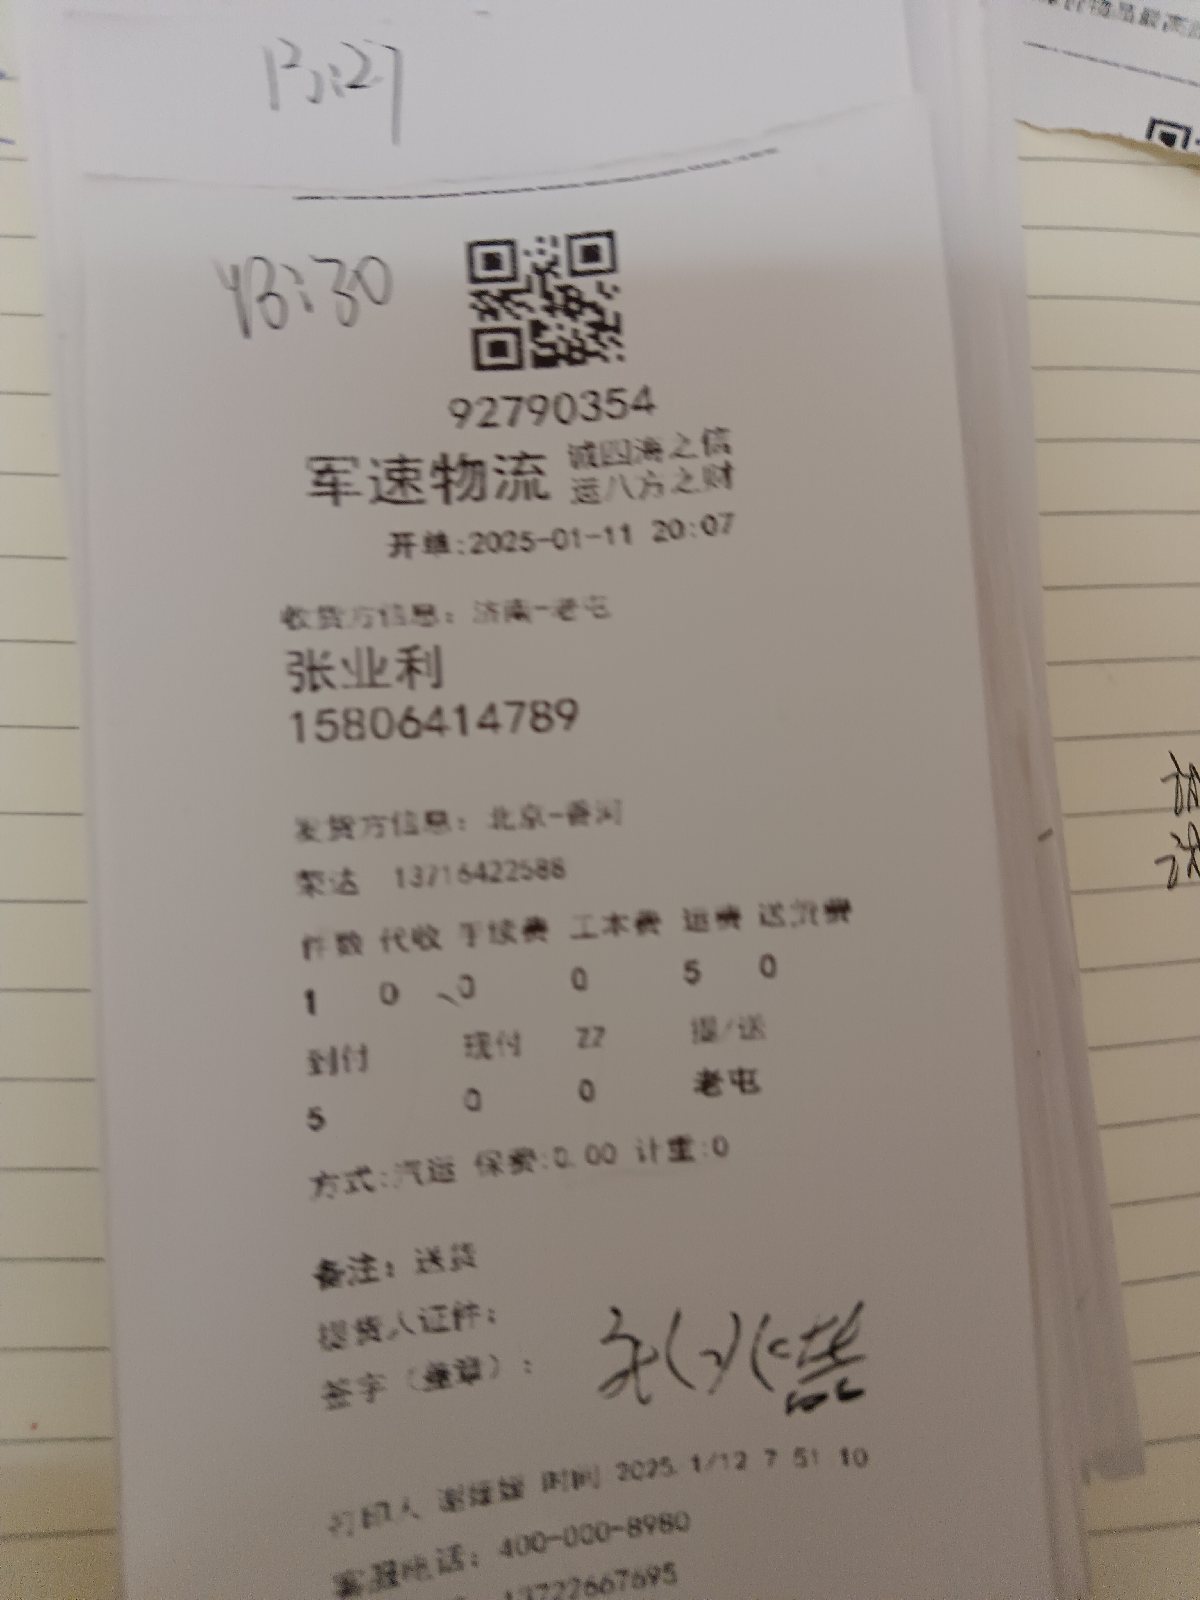 13:27
13:30
92790354
军速物流 诚四海之信
运八方之财
开单:2025-01-11 20:07
收货方信息: 济南-老屯
张业利
15806414789
发货方信息: 北京-香河
荣达 13716422588
件数 代收 手续费 工本费 运费 送货费
1 0 0 0 5 0
到付 现付 ZZ 提/送
5 0 0 老屯
方式:汽运 保费:0.00 计重:0
备注: 送货
提货人证件:
签字(盖章):
打印人 谢媛媛 时间 2025.1/12 7 51 10
客服电话: 400-000-8980
13722667695